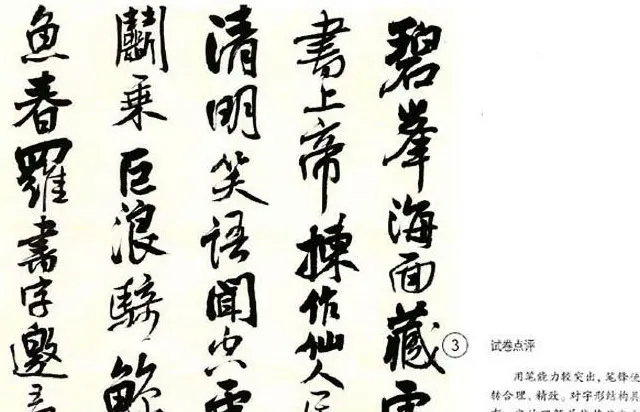 碧峯海面藏
書上帝揀作仙人
清明笑語聞空
鬭乘巨浪騎
魚春羅書字邀
3
试卷点评
用笔能力较突出，笔锋使
转合理、精致。对字形结构具